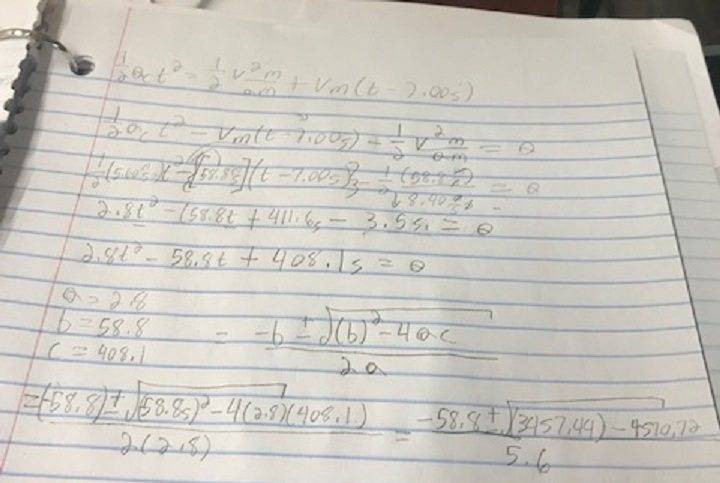 ½ a_c t² = ½ v²m/am + Vm(t - 7.00s)
½ a_c t² - Vm(t - 7.00s) + ½ v²m/am = 0
½(5.60s)t² - [58.8s](t - 7.00s) - ½ (58.8)/8.40 = 0
2.8t² - (58.8t + 411.6s - 3.5s = 0
2.8t² - 58.8t + 408.1s = 0
a = 2.8
b = 58.8
c = 408.1
= -b ± √(b)² - 4ac / 2a
= (-58.8) ± √(58.8s)² - 4(2.8)(408.1) / 2(2.8) = -58.8 ± √(3457.44) - 4570.72 / 5.6